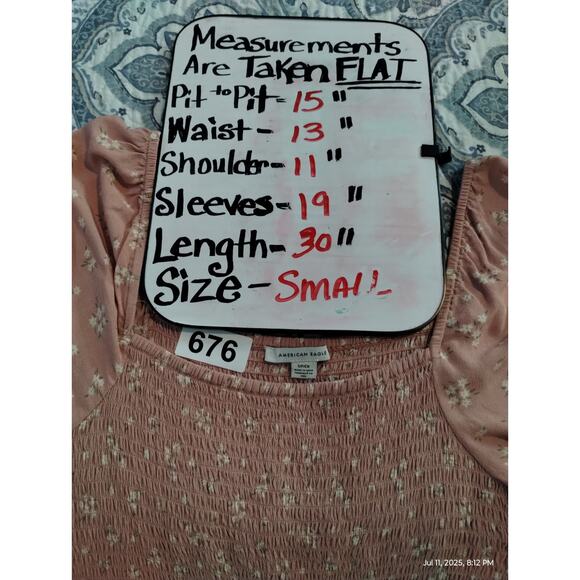 Measurements
Are Taken FLAT
Pit to Pit - 15"
Waist - 13"
Shoulder - 11"
Sleeves - 19"
Length - 30"
Size - SMALL
676
AMERICAN EAGLE
Jul 11, 2025, 8:12 PM